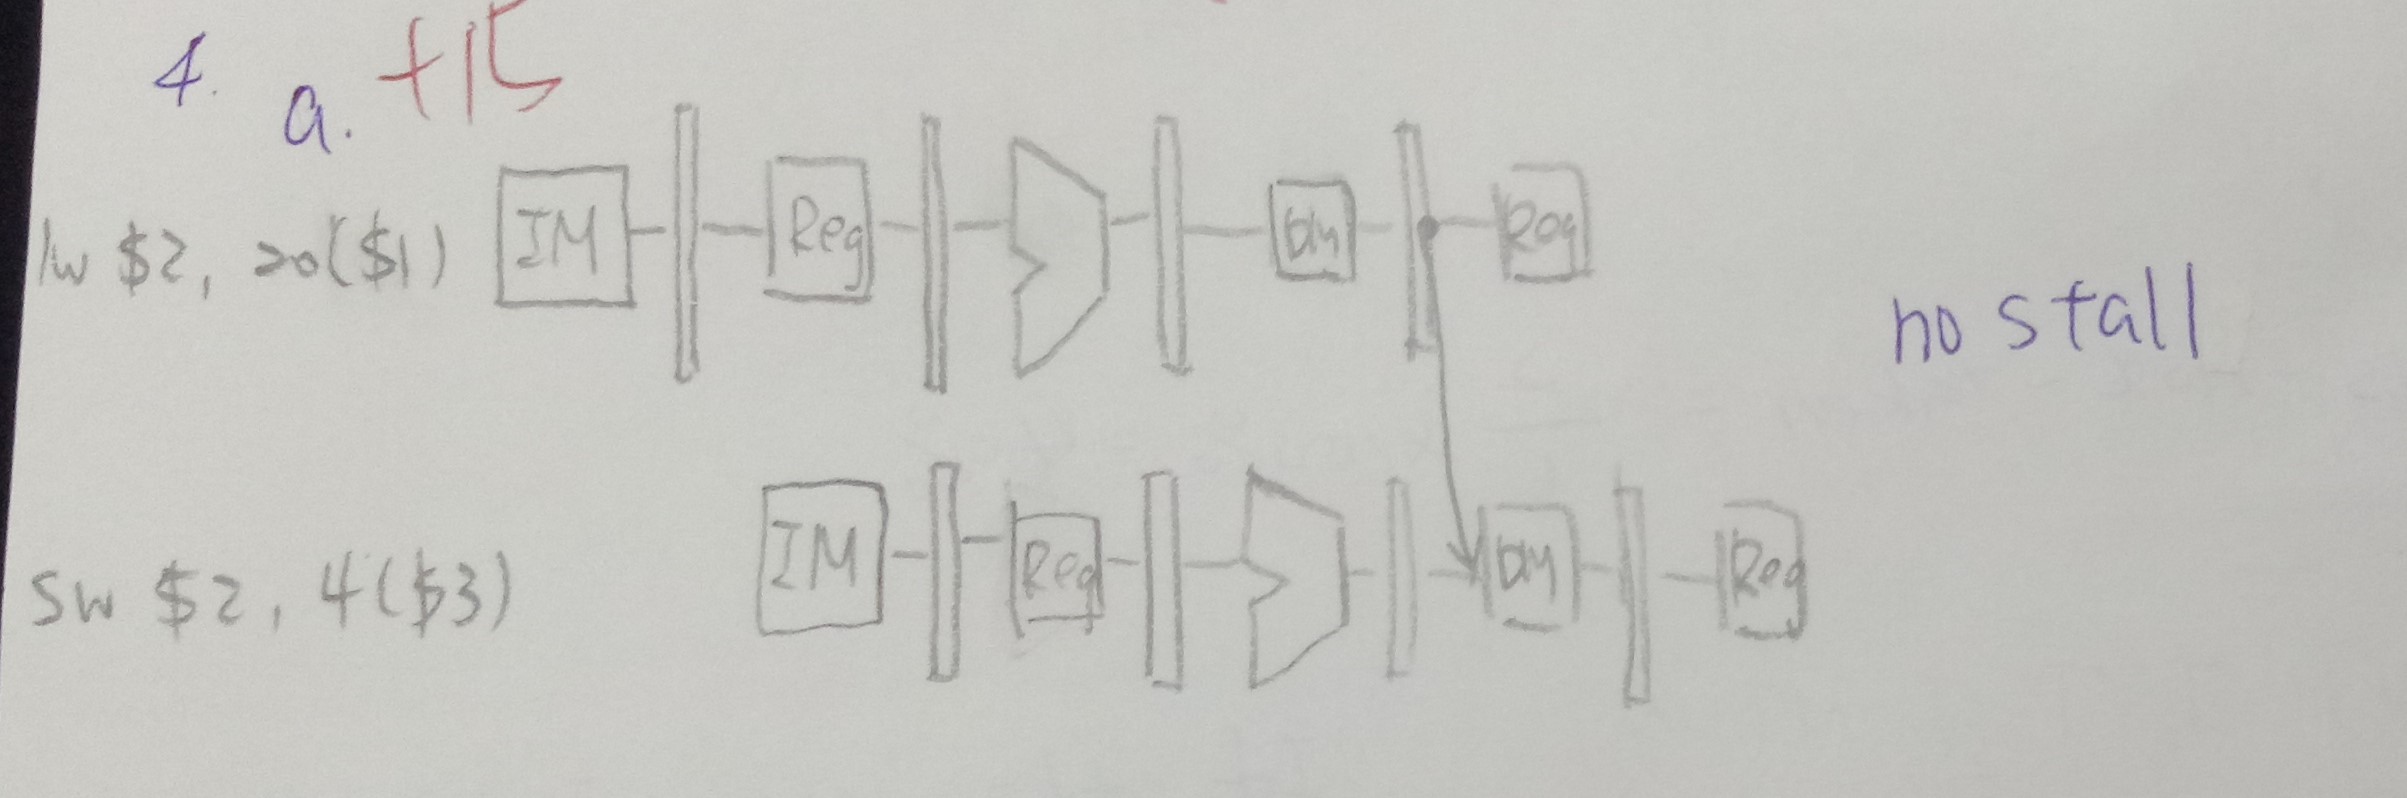 4. a. +15
lw $2, 20($1) IM Reg DM Reg
no stall
sw $2, 4($3) IM Reg DM Reg